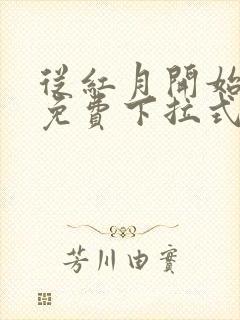 從紅月開始
免費下拉式
芳川由實